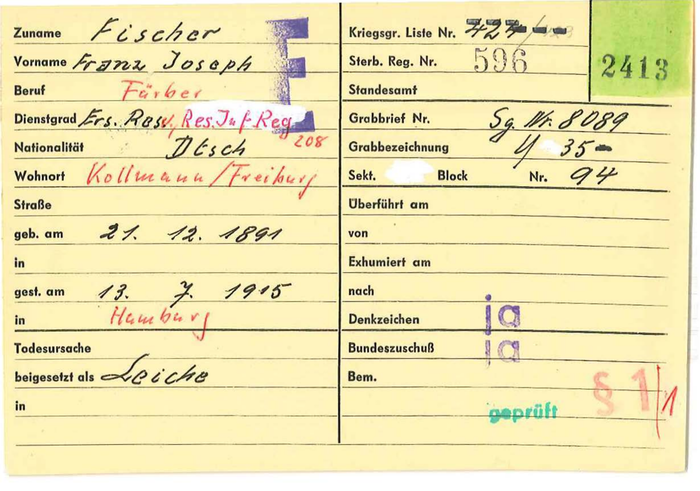 Zuname Fischer
Vorname Franz Joseph
Beruf Färber
Dienstgrad Ers. Res. Res. Inf. Reg
208
Nationalität Dtsch
Wohnort Kollmann/Freiburg
Straße
geb. am 21. 12. 1891
in
gest. am 13. 7. 1915
in Hamburg
Todesursache
beigesetzt als Leiche
in
E
Kriegsgr. Liste Nr.
Sterb. Reg. Nr. 596
2413
Standesamt
Grabbrief Nr. Sg. Nr. 8089
Grabbezeichnung 35-
Sekt. Block Nr. 94
Überführt am
von
Exhumiert am
nach
Denkzeichen ja
Bundeszuschuß ja
Bem.
geprüft § 1/1